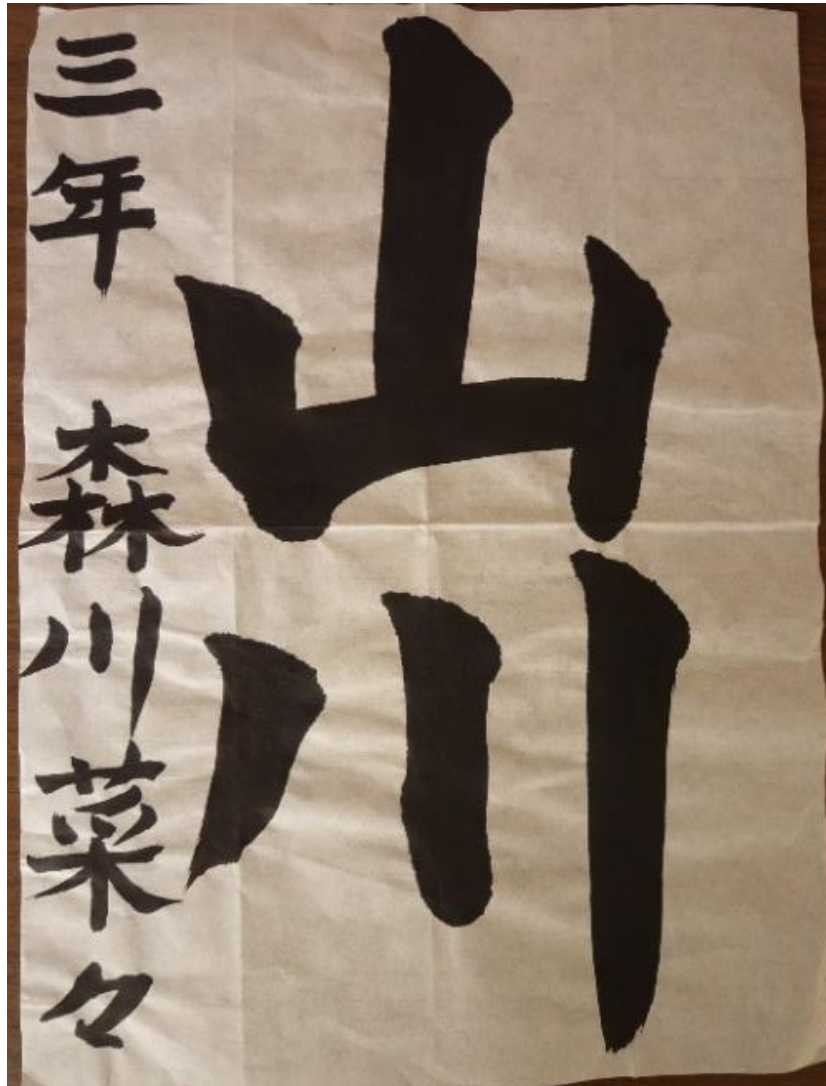 山川
三年 森川菜々